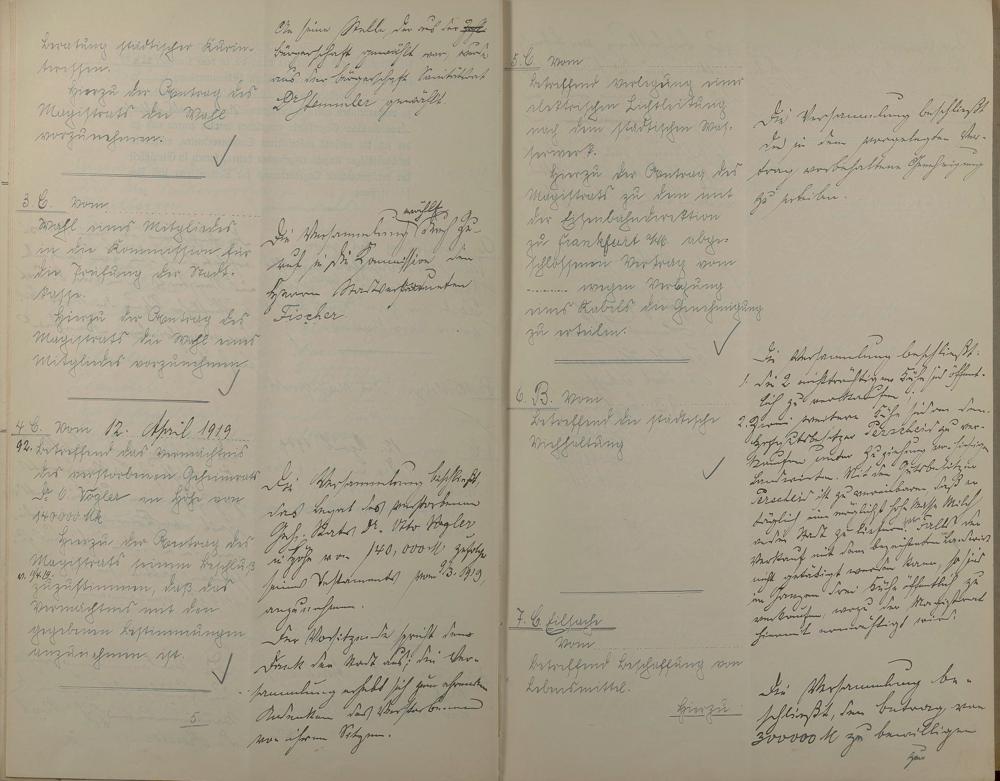 Beratung städtischer Kurin-
teressen.
Hierzu der Antrag des
Magistrats die Wahl
vorzunehmen.
An seine Stelle, der aus der
Bürgerschaft gewählt war, wurde
aus der Bürgerschaft Sanitätsrat
Dr Stemmler gewählt.
3. C. Vom
Wahl eines Mitgliedes
in die Kommission für
die Prüfung der Stadt-
kasse.
Hierzu der Antrag des
Magistrats die Wahl eines
Mitgliedes vorzunehmen.
wählt
Die Versammlung durch Zu-
ruf in die Kommission den
Herrn Stadtverordneten
Fischer
4. C. Vom 12. April 1919
92. Betreffend das Vermächtnis
des verstorbenen Geheimrats
Dr. O. Vogler in Höhe von
140000 Mk
Hierzu der Antrag des
Magistrats seinem Beschluß
v. 9/4.19.
zuzustimmen, daß das
Vermächtnis mit den
gegebenen Bestimmungen
anzunehmen ist.
5.
Die Versammlung beschließt,
das Legat des verstorbenen
Geh. Rats Dr. Otto Vogler
in Höhe von 140,000 M zufolge
seines Testaments vom 9/3.1919,
anzunehmen.
Der Vorsitzende spricht den
Dank der Stadt aus; die Ver-
sammlung erhebt sich zum ehrenden
Andenken des Verstorbenen
von ihren Sitzen.
5. C. Vom
Betreffend Verlegung einer
elektrischen Lichtleitung
nach dem städtischen Was-
serwerk.
Hierzu der Antrag des
Magistrats zu dem mit
der Eisenbahndirektion
zu Frankfurt a/M. abge-
schlossenen Vertrag vom
wegen Verlegung
eines Kabels die Genehmigung
zu erteilen.
Die Versammlung beschließt
die in dem vorgelegten Ver-
trag vorbehaltene Genehmigung
zu erteilen.
6. B. Vom
Betreffend die städtische
Viehhaltung
Die Versammlung beschließt:
1. Die 2 nichtträchtigen Kühe sind öffent-
lich zu verkaufen.
2. weitere Kühe sind an den
Gutsbesitzer Perscheid zu ver-
kaufen unter Zuziehung von hiesigen
Landwirten. Mit dem Gutsbesitzer
Perscheid ist zu vereinbaren daß er
täglich eine möglichst hohe Masse Milch
an die Stadt zu liefern hat. Falls der
Verkauf mit dem bezeichneten Landwirt
nicht getätigt werden kann, so sind
im Ganzen drei Kühe öffentlich zu
verkaufen, wozu der Magistrat
hiermit ermächtigt wird.
7. C. Eilsache
Vom
Betreffend Beschaffung von
Lebensmittel.
Hierzu
Die Versammlung be-
schließt, den Betrag von
300000 M zu bewilligen
zur